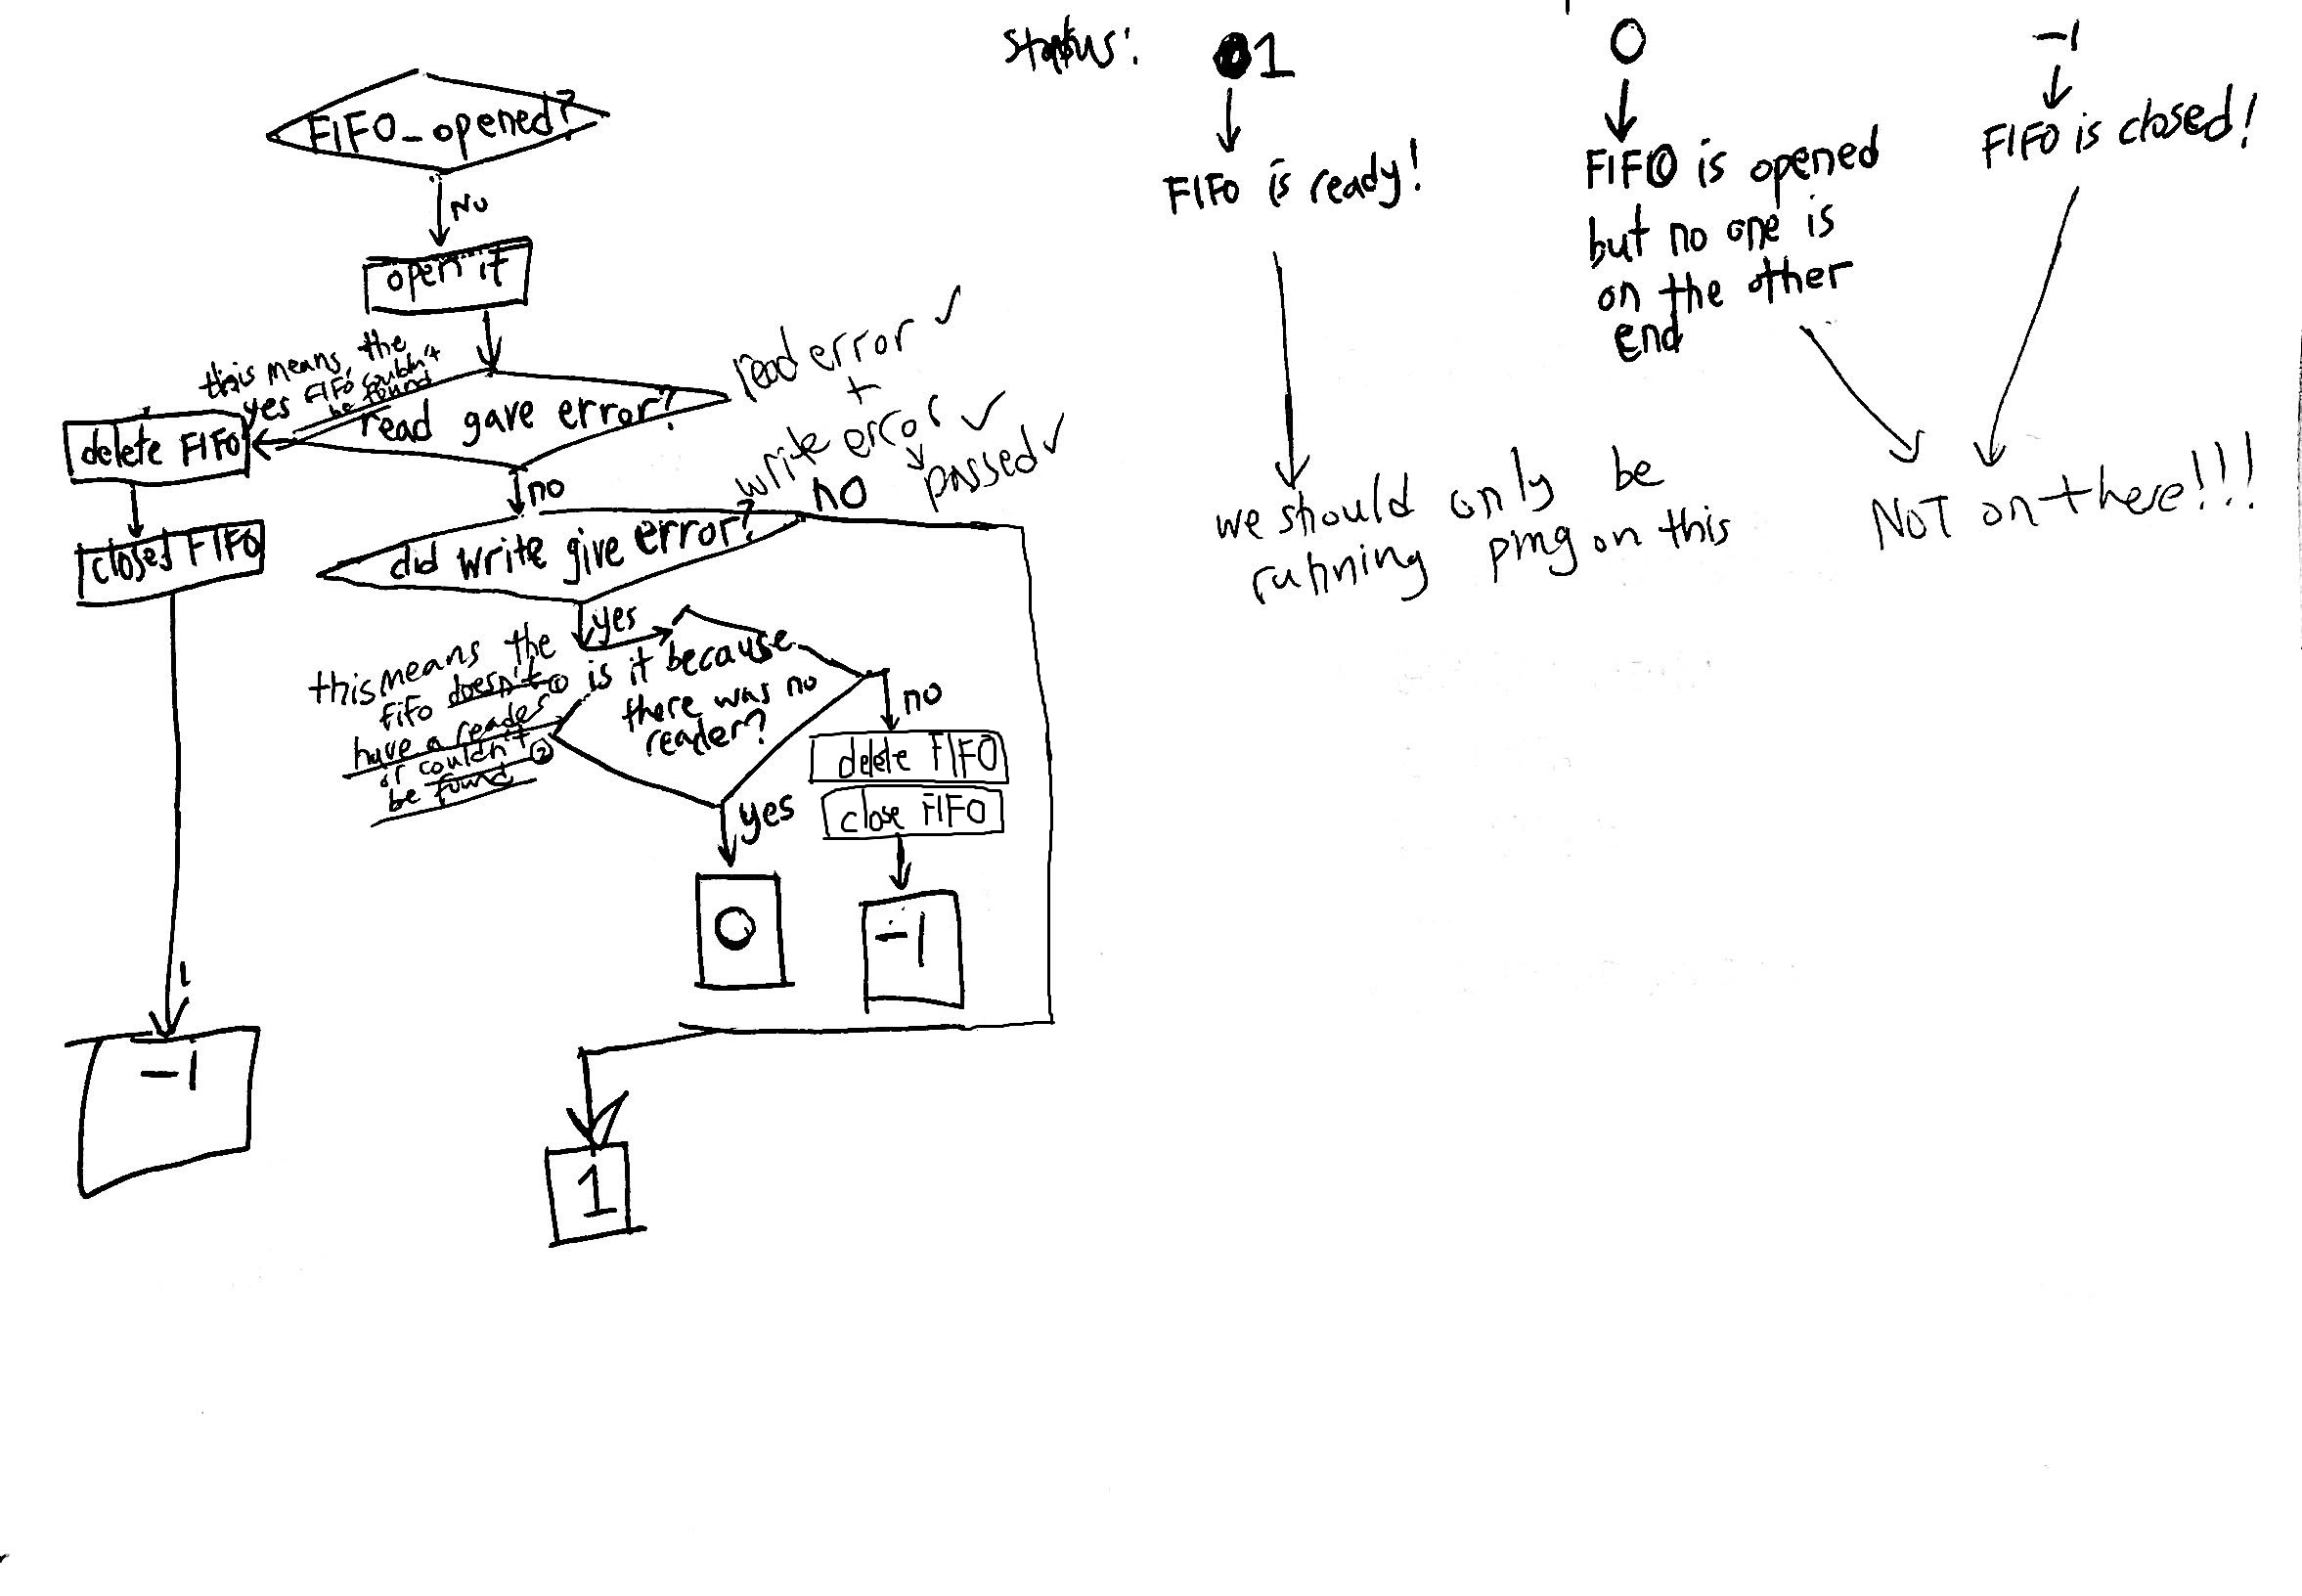 FIFO_opened?
No
open it
this means, the
FIFO couldn't
be found
yes
read gave error?
delete FIFO
closes FIFO
-1
no
read error ✓
+
write error ✓
passed ✓
did write give error?
no
yes
this means the
fifo doesn't ①
have a reader
or couldn't ②
be found
is it because
there was no
reader?
no
delete FIFO
close FIFO
-1
yes
0
1
Status:
1
FIFO is ready!
we should only be
running ping on this
0
FIFO is opened
but no one is
on the other
end
-1
FIFO is closed!
NOT on there!!!